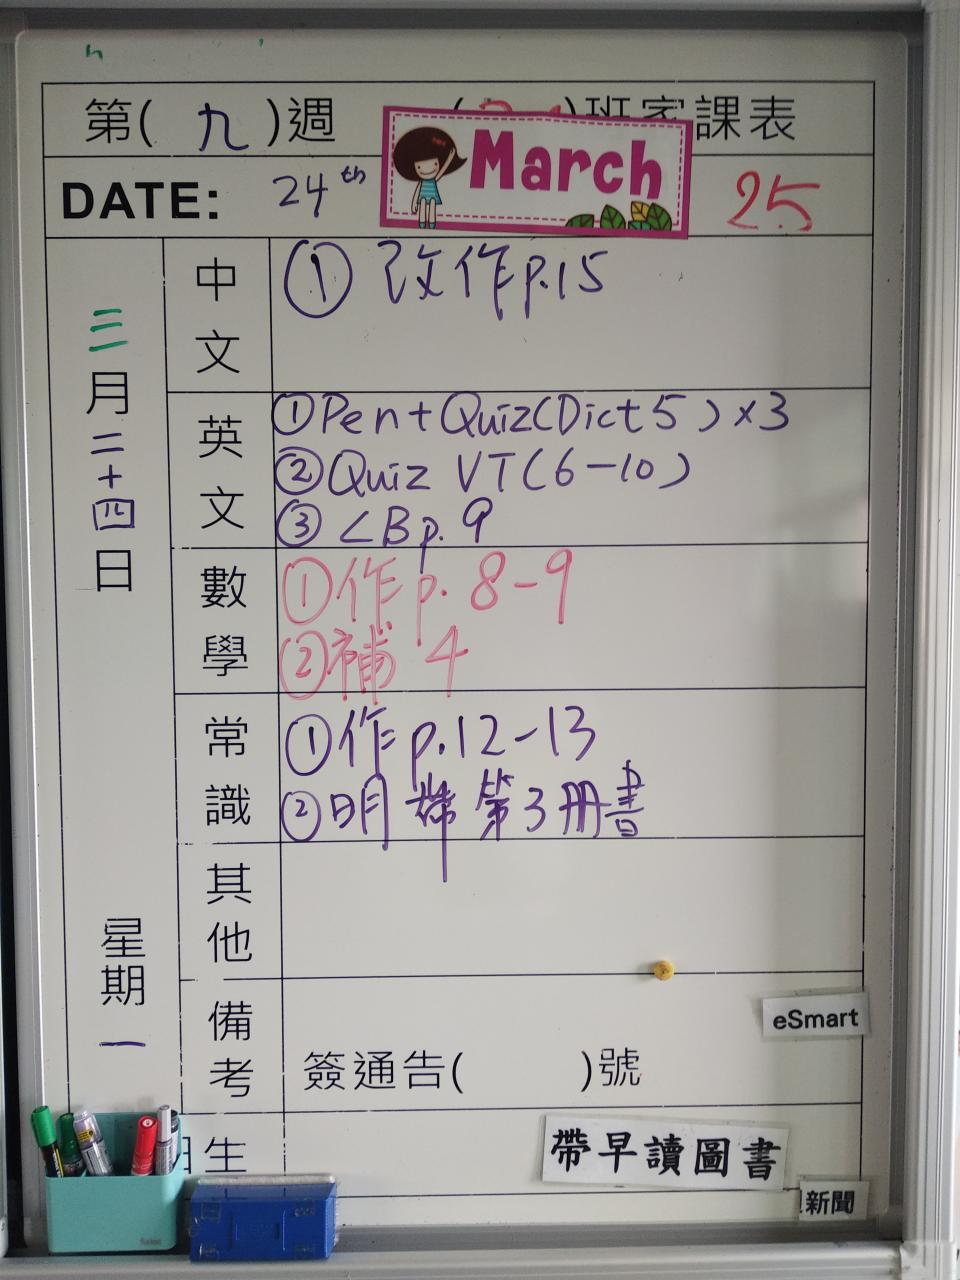 第(九)週 班家課表
DATE: 24th March 25
三月二十四日
星期一
中文
① 改作p.15
英文
① Pen + Quiz(Dict 5) x3
② Quiz VT(6-10)
③ LB p.9
數學
① 作p. 8-9
② 補 4
常識
① 作p.12-13
② 明帶第3冊書
其他
備考
簽通告( )號
eSmart
生
帶早讀圖書
新聞